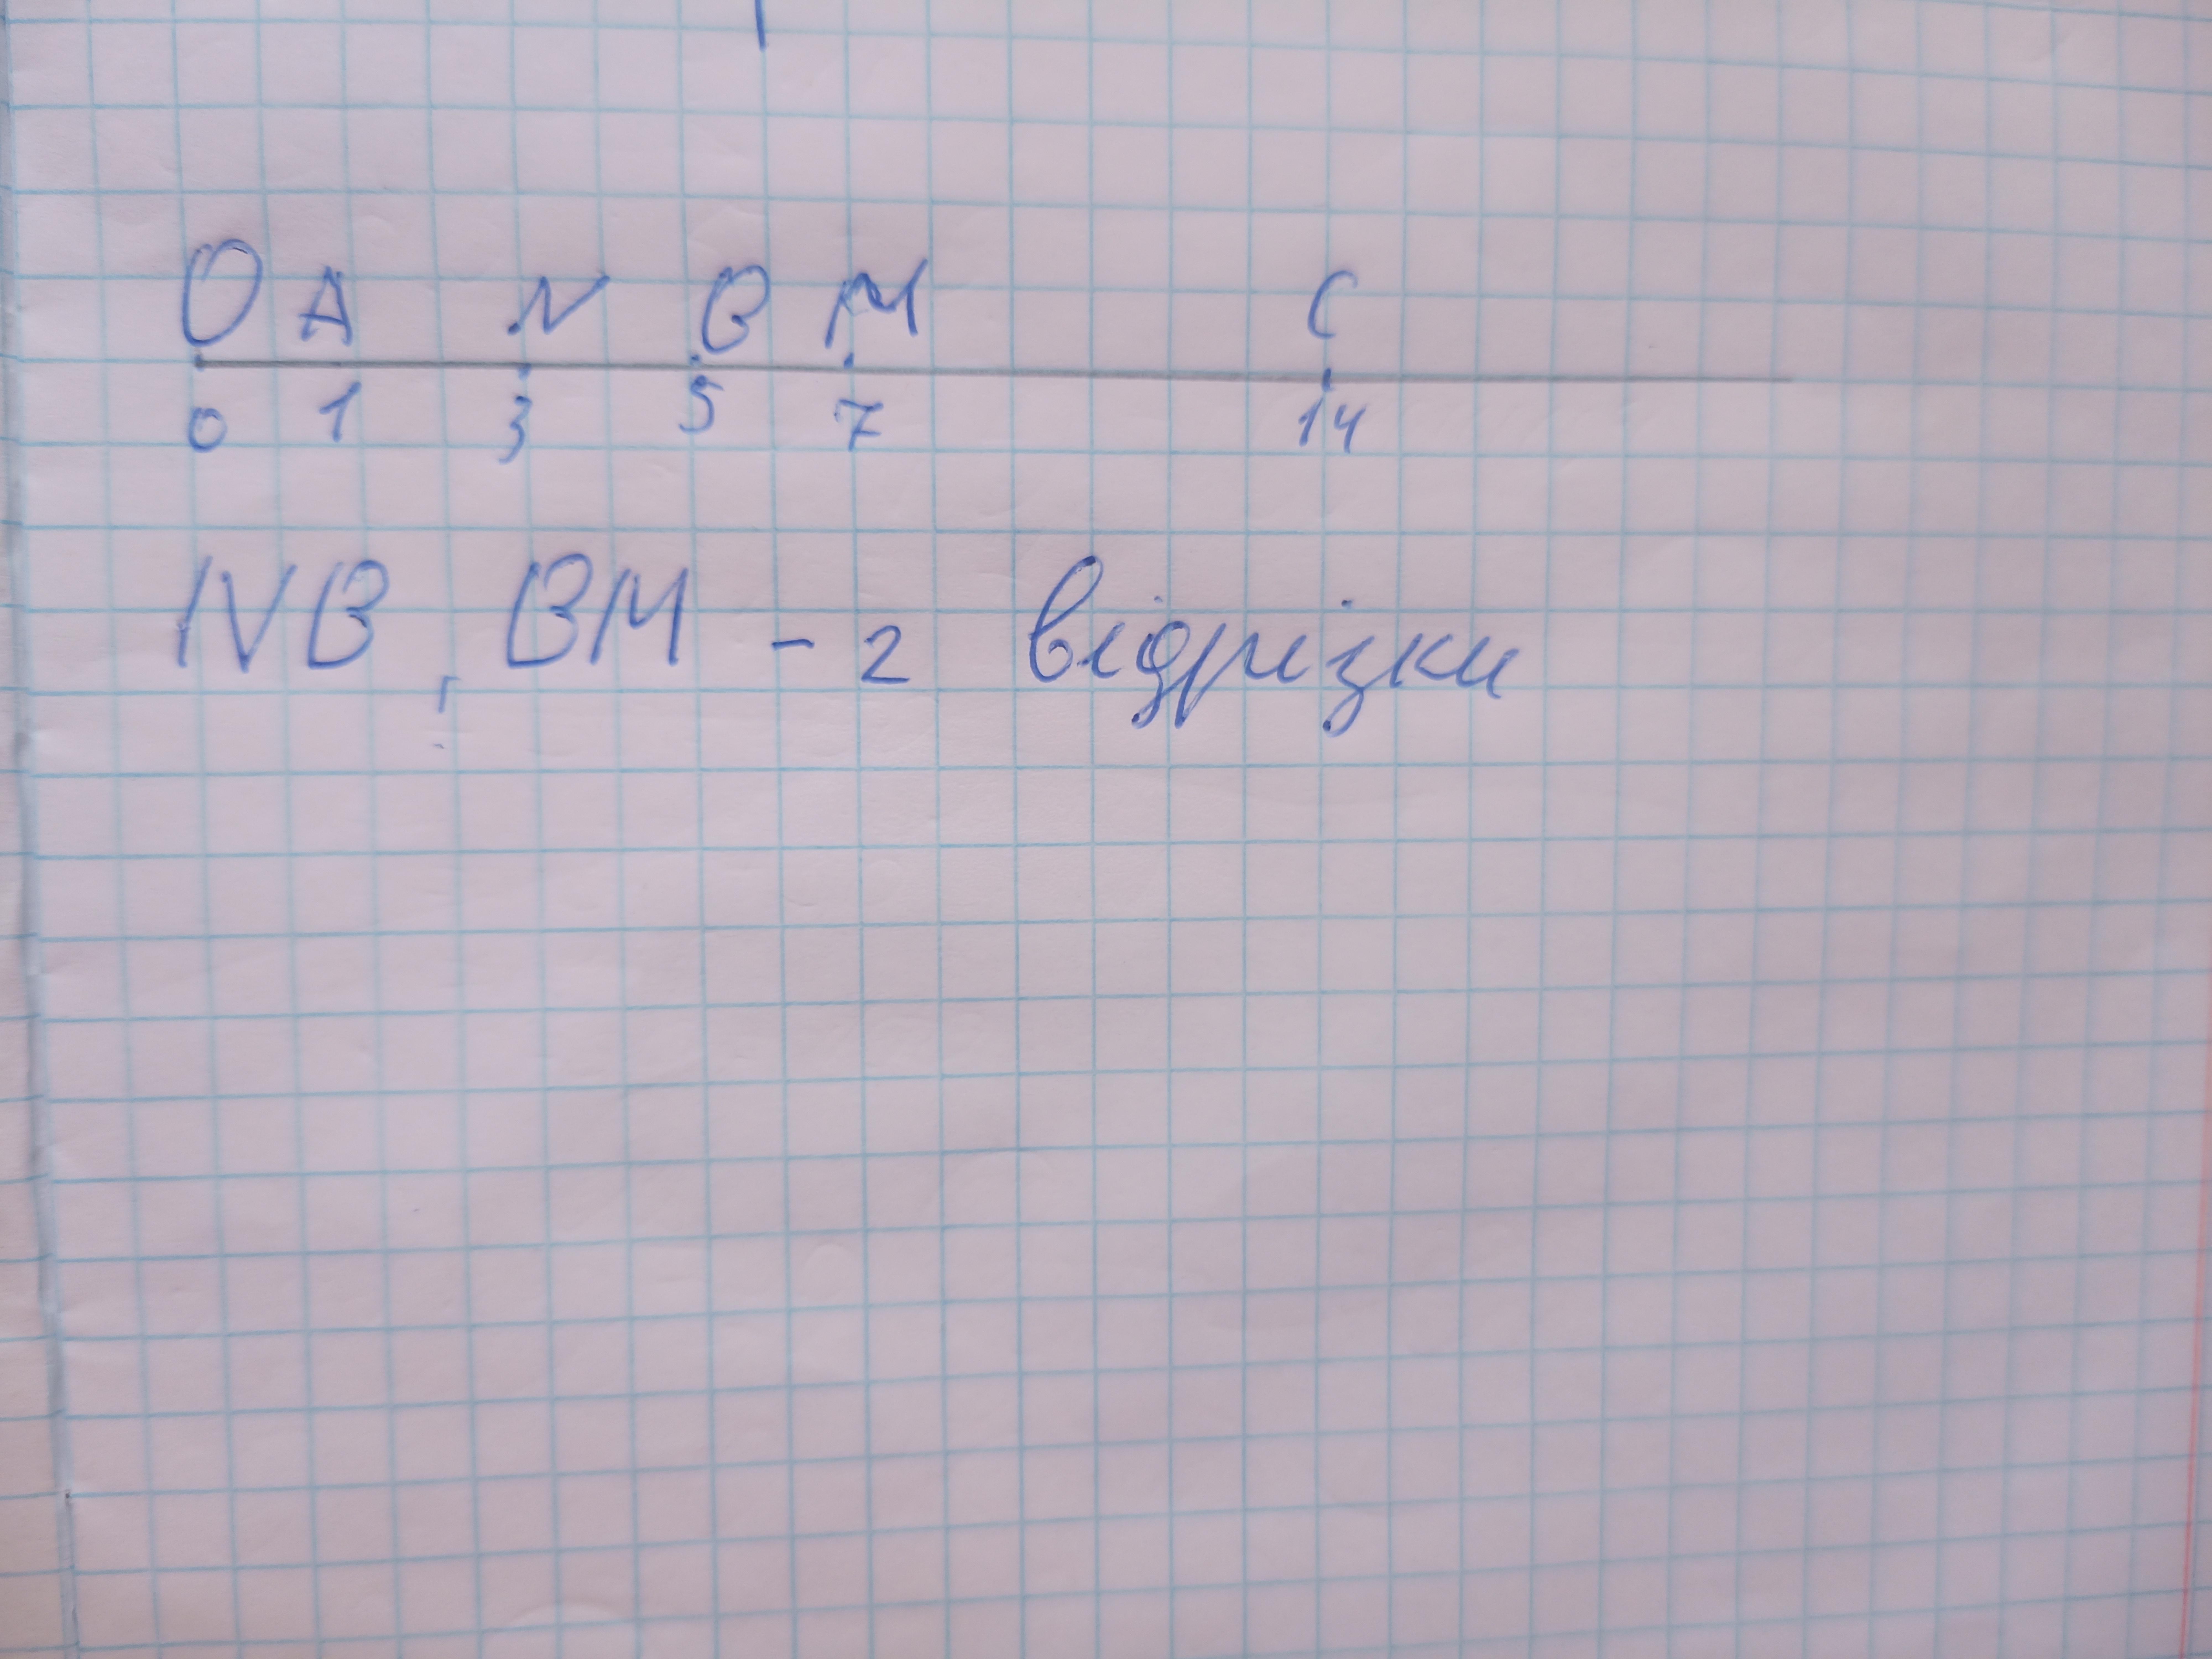 O A N B M C
0 1 3 5 7 14
NB, BM - 2 відрізки